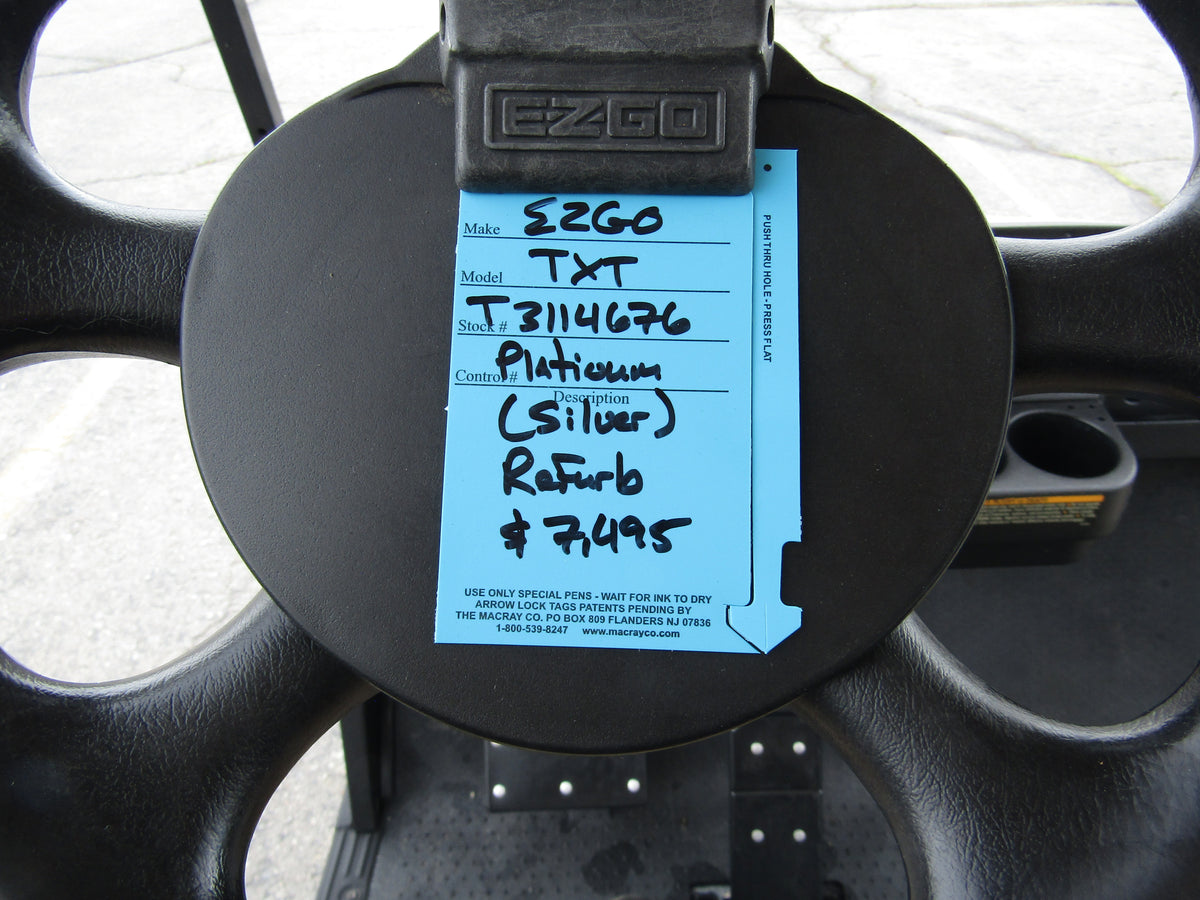 E-Z-GO
Make EZGO
Model TXT
Stock # T3114676
Control # Platinum
Description
(Silver)
Refurb
$7,495
PUSH THRU HOLE - PRESS FLAT
USE ONLY SPECIAL PENS - WAIT FOR INK TO DRY
ARROW LOCK TAGS PATENTS PENDING BY
THE MACRAY CO. PO BOX 809 FLANDERS NJ 07836
1-800-539-8247 www.macrayco.com